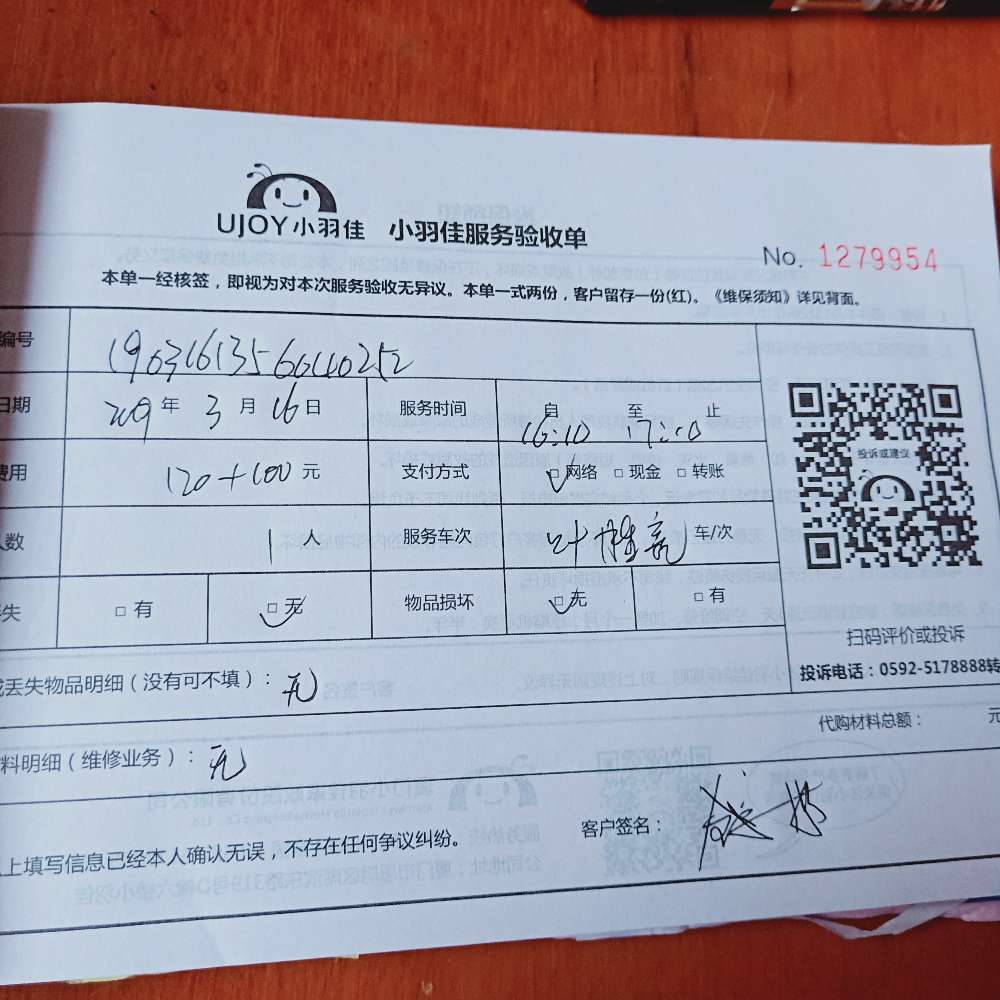 UJOY小羽佳 小羽佳服务验收单
No. 1279954
本单一经核签，即视为对本次服务验收无异议。本单一式两份，客户留存一份(红)。《维保须知》详见背面。
编号 19031613560440252
日期 2019 年 3 月 16 日 服务时间 自 至 止
16:10 17:10
费用 120+100 元 支付方式 □网络 □现金 □转账
人数 1 人 服务车次 车/次
丢失 □有 □无 物品损坏 □无 □有
投诉或建议
扫码评价或投诉
投诉电话：0592-5178888转
或丢失物品明细（没有可不填）： 无
代购材料总额： 元
料明细（维修业务）： 无
客户签名：
上填写信息已经本人确认无误，不存在任何争议纠纷。